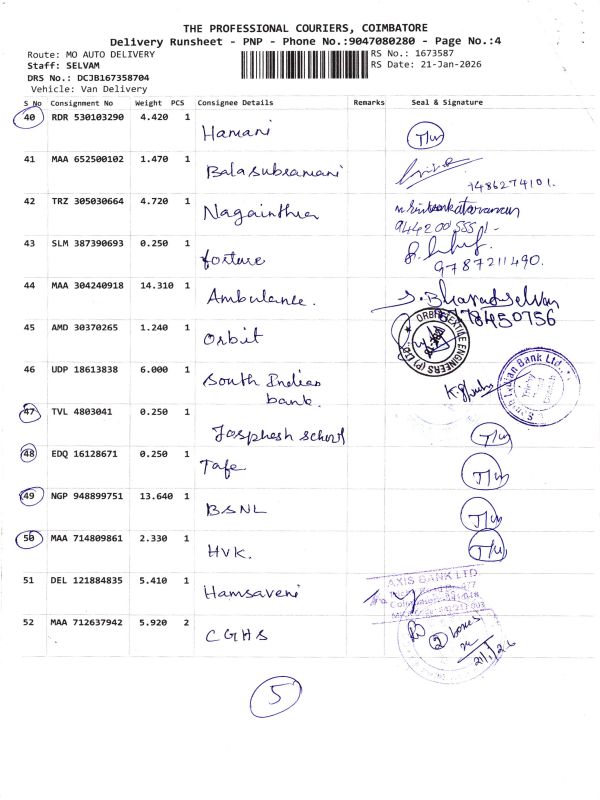 THE PROFESSIONAL COURIERS, COIMBATORE
Delivery Runsheet - PNP - Phone No.:9047080280 - Page No.:4
Route: MO AUTO DELIVERY
RS No.: 1673587
Staff: SELVAM
RS Date: 21-Jan-2026
DRS No.: DCJB167358704
Vehicle: Van Delivery
S No Consignment No Weight PCS Consignee Details Remarks Seal & Signature
40 RDR 530103290 4.420 1 Hamani T/w
41 MAA 652500102 1.470 1 Balasubramani
42 TRZ 305030664 4.720 1 Nagainthra
944200 5551-
43 SLM 387390693 0.250 1 forture
9787211490.
44 MAA 304240918 14.310 1 Ambulance. S. Bharadselvan
45 AMD 30370265 1.240 1 Orbit ORBIT TEXTILE ENGINEERS (P) LTD
46 UDP 18613838 6.000 1 South Indian bank. South Indian Bank Ltd.
47 TVL 4803041 0.250 1 Josphesh school T/w
48 EDQ 16128671 0.250 1 Tafe T/w
49 NGP 948899751 13.640 1 BSNL T/w
50 MAA 714809861 2.330 1 HVK. T/w
51 DEL 121884835 5.410 1 Hamsaveni AXIS BANK LTD
52 MAA 712637942 5.920 2 CGHS 2 boxes
21/1/26
5